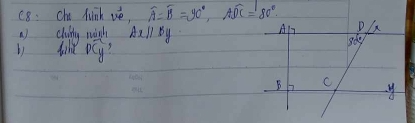 C8: Cho hình vẽ, Â = B̂ = 90°, ADC = 80°.
a) chứng minh Ax // By.
b) tính DCy?
A D x
80°
B C y